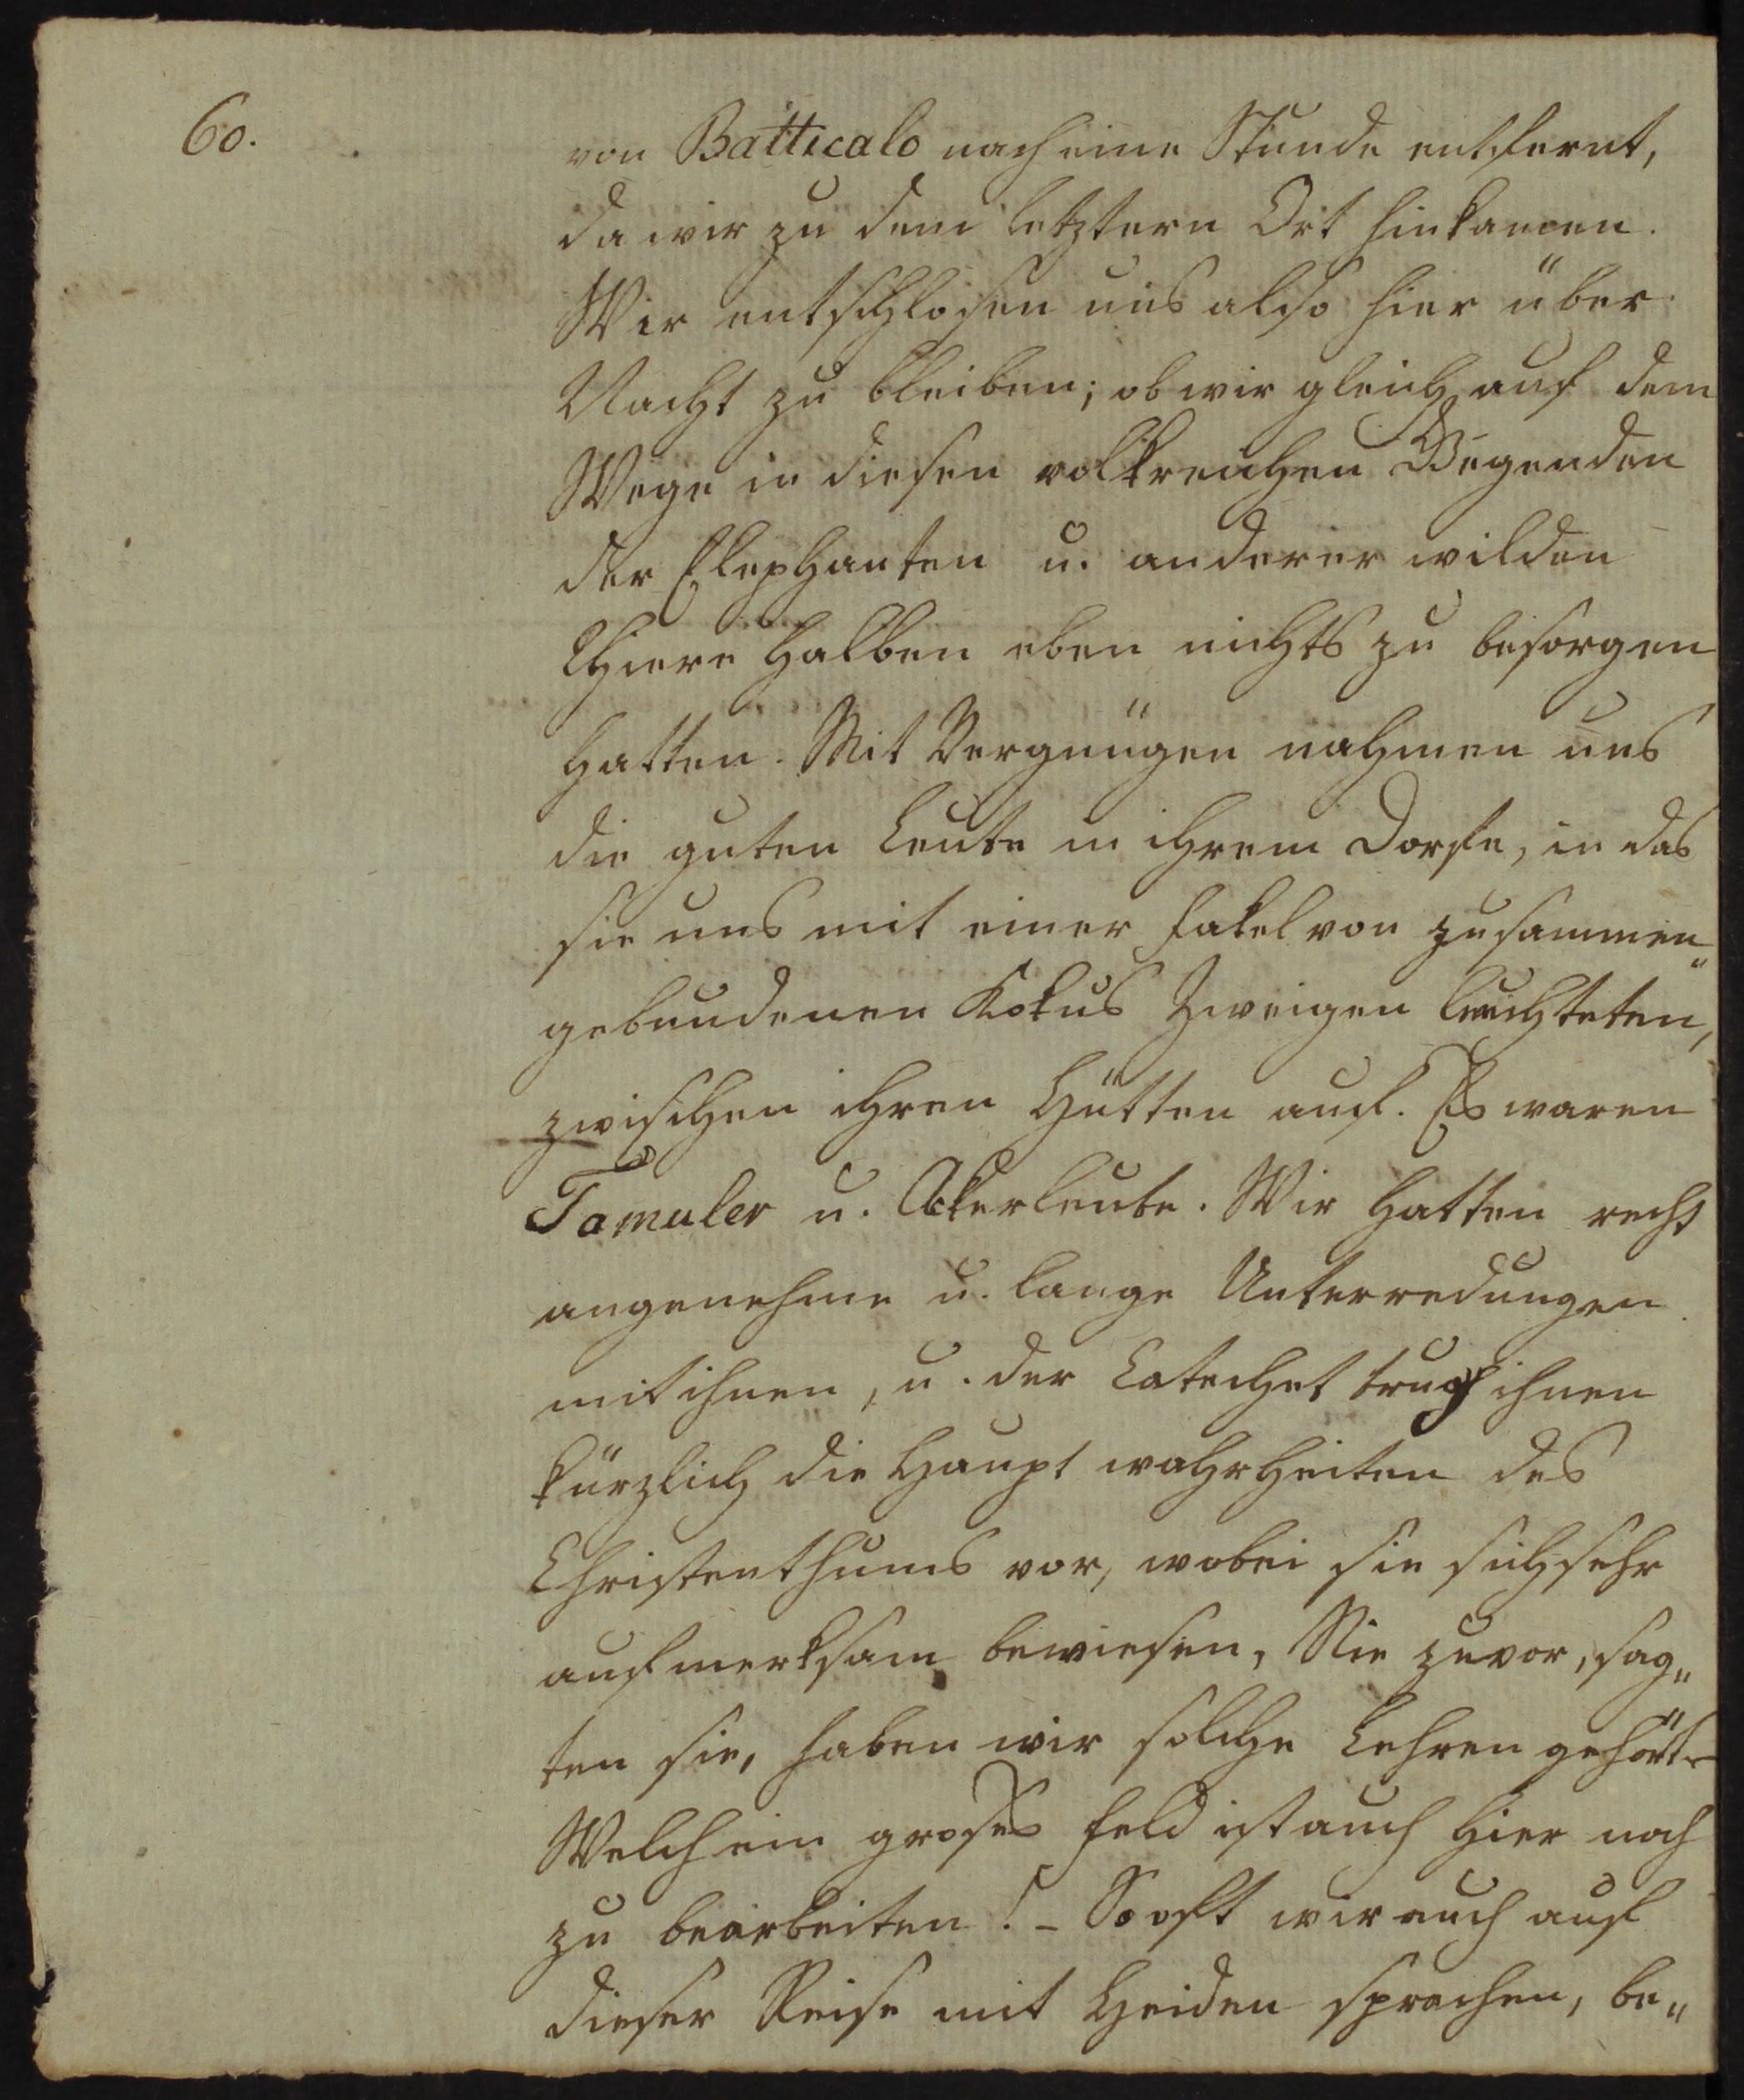 60.
von Batticalo noch eine Stunde entfernt,
da wir zu dem letztern Ort hinkamen.
Wir entschlosen uns also hier über
Nacht zu bleiben; ob wir gleich auf dem
Wege in diesen volkreichen Gegenden
der Elephanten u. anderer wilden
Thiere halben eben nichts zu besorgen
hatten. Mit Vergnügen nahmen uns
die guten Leute in ihrem Dorfe, in das
sie uns mit einer Fakel von zusammen„
gebundenen Kokus Zweigen leuchteten,
zwischen ihren Hütten auf. Es waren
Tamuler u. Akerleute. Wir hatten recht
angenehme u. lange Unterredungen
mit ihnen, u. der Catechet trug ihnen
kürzlich die Haupt wahrheiten des
Christenthums vor, wobei sie sich sehr
aufmerksam bewiesen, Nie zuvor, sag„
ten sie, haben wir solche Lehren gehört.
Welch ein groses Feld ist auch hier noch
zu bearbeiten! – So oft wir auch auf
dieser Reise mit Heiden sprachen, be„